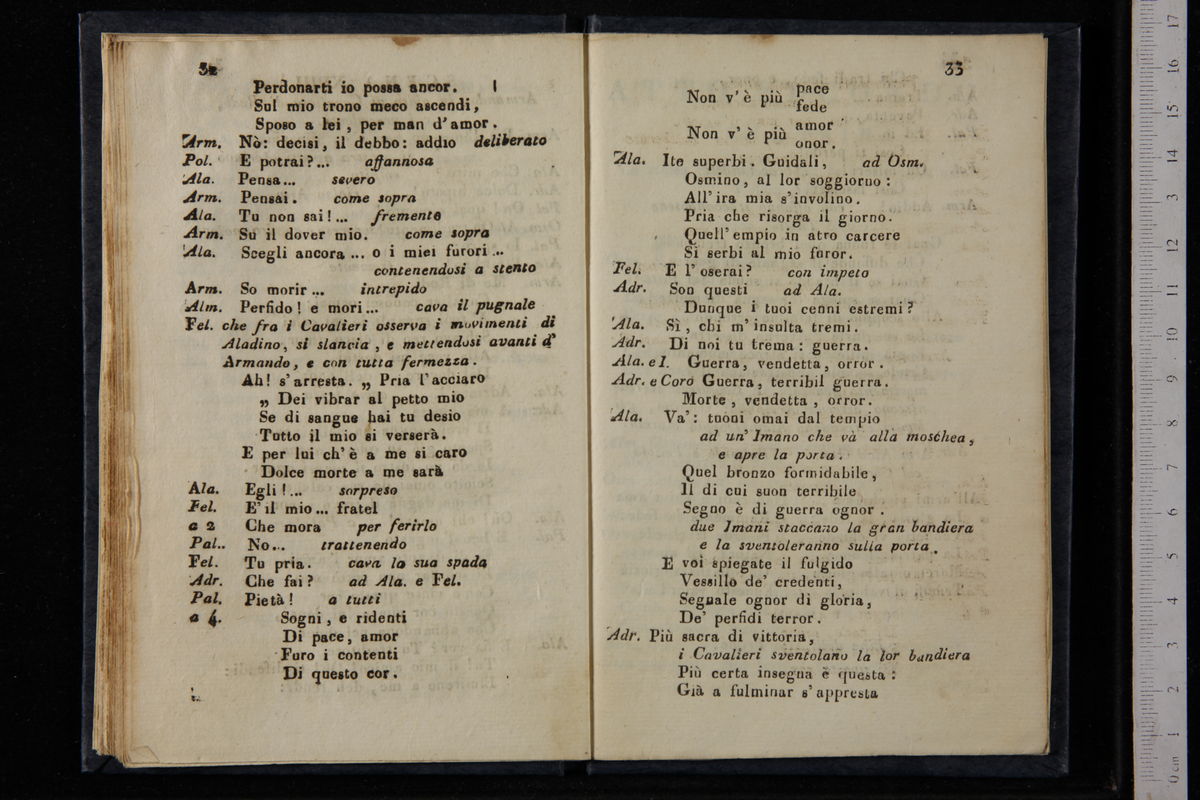 32
Perdonarti io possa ancor.
Sul mio trono meco ascendi,
Sposo a lei, per man d'amor.
Arm. Nò: decisi, il debbo: addio deliberato
Pol. E potrai?... affannosa
Ala. Pensa... severo
Arm. Pensai. come sopra
Ala. Tu non sai!... fremente
Arm. Su il dover mio. come sopra
Ala. Scegli ancora ... o i miei furori...
contenendosi a stento
Arm. So morir... intrepido
Alm. Perfido! e mori... cava il pugnale
Fel. che fra i Cavalieri osserva i movimenti di
Aladino, si slancia, e mettendosi avanti d'
Armando, e con tutta fermezza.
Ah! s'arresta. „ Pria l'acciaro
„ Dei vibrar al petto mio
Se di sangue hai tu desio
Tutto il mio si verserà.
E per lui ch'è a me si caro
Dolce morte a me sarà
Ala. Egli!... sorpreso
Fel. E' il mio... fratel
a 2 Che mora per ferirlo
Pal.. No... trattenendo
Fel. Tu pria. cava la sua spada
Adr. Che fai? ad Ala. e Fel.
Pal. Pietà! a tutti
a 4. Sogni, e ridenti
Di pace, amor
Furo i contenti
Di questo cor.
33
Non v'è più pace
fede
Non v'è più amor
onor.
Ala. Ite superbi. Guidali, ad Osm.
Osmino, al lor soggiorno:
All'ira mia s'involino.
Pria che risorga il giorno.
Quell'empio in atro carcere
Si serbi al mio furor.
Fel. E l'oserai? con impeto
Adr. Son questi ad Ala.
Dunque i tuoi cenni estremi?
Ala. Sì, chi m'insulta tremi.
Adr. Di noi tu trema: guerra.
Ala. e l. Guerra, vendetta, orror.
Adr. e Coro Guerra, terribil guerra.
Morte, vendetta, orror.
Ala. Va': tuoni omai dal tempio
ad un' Imano che và alla moschea,
e apre la porta.
Quel bronzo formidabile,
Il di cui suon terribile
Segno è di guerra ognor.
due Imani staccano la gran bandiera
e la sventoleranno sulla porta.
E voi spiegate il fulgido
Vessillo de' credenti,
Segnale ognor di gloria,
De' perfidi terror.
Adr. Più sacra di vittoria,
i Cavalieri sventolano la lor bandiera
Più certa insegna è questa:
Già a fulminar s'appresta
17
16
15
14
13
12
11
10
9
8
7
6
5
4
3
2
1
0 cm